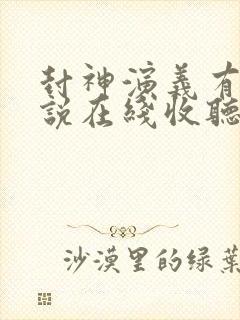 封神演義有
説在綫收聽
沙漠里的绿葉